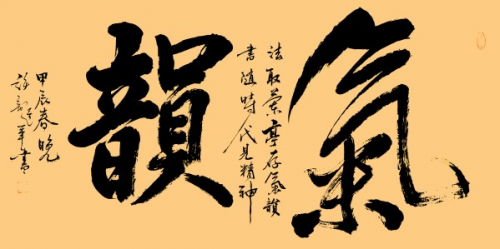 氣韻
法取蘭亭存氣韻
書隨時代見精神
甲辰春晚
書